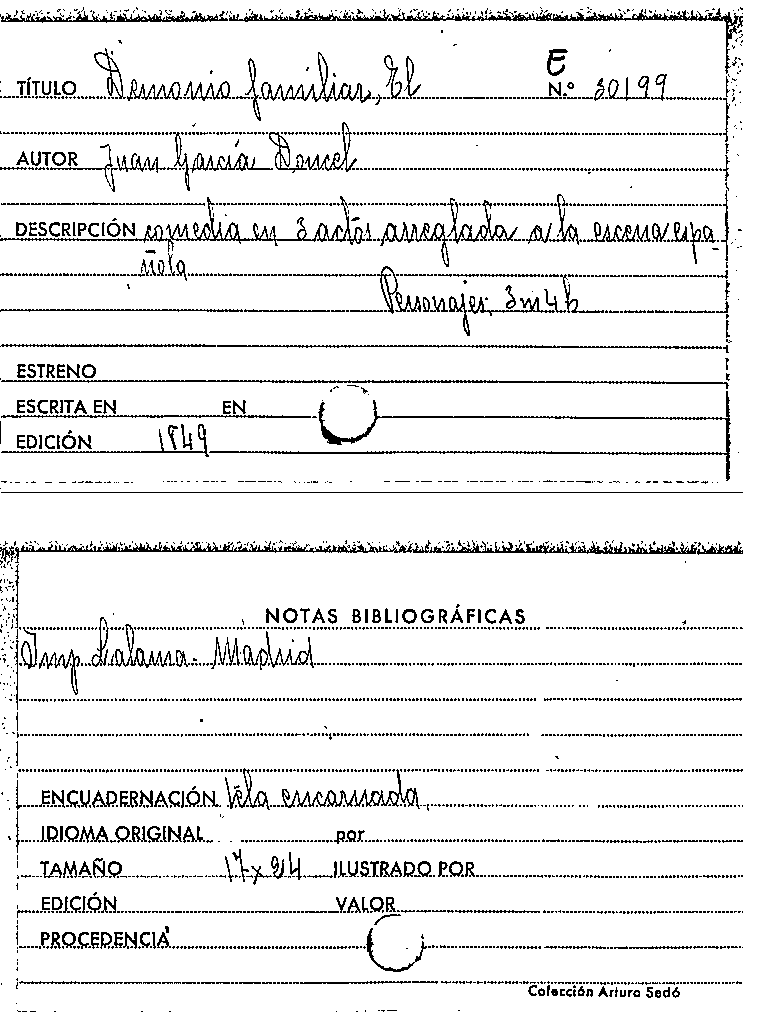 TÍTULO Demonio familiar, El E N.º 30199
AUTOR Juan García Doncel
DESCRIPCIÓN comedia en 3 actos arreglada a la escena espa-
ñola
Personajes, 3m4h
ESTRENO
ESCRITA EN EN
EDICIÓN 1849
NOTAS BIBLIOGRÁFICAS
Imp Lalama. Madrid
ENCUADERNACIÓN tela encarnada
IDIOMA ORIGINAL por
TAMAÑO 17x24 ILUSTRADO POR
EDICIÓN VALOR
PROCEDENCIA
Colección Arturo Sedó